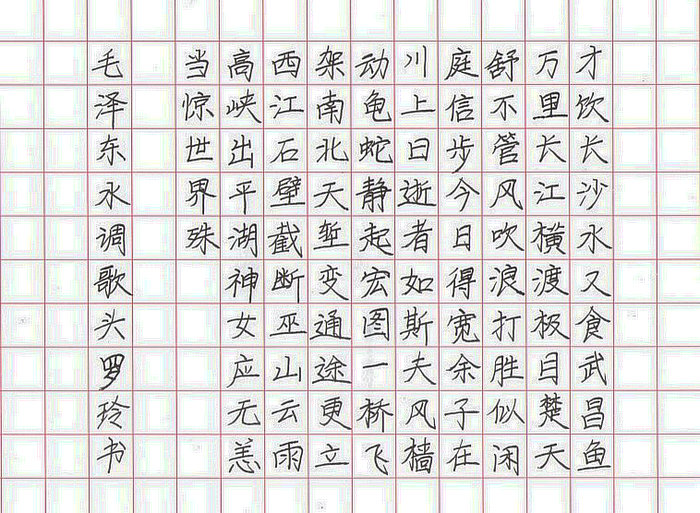 才饮长沙水又食武昌鱼
万里长江横渡极目楚天
舒不管风吹浪打胜似闲
庭信步今日得宽余子在
川上曰逝者如斯夫风樯
动龟蛇静起宏图一桥飞
架南北天堑变通途更立
西江石壁截断巫山云雨
高峡出平湖神女应无恙
当惊世界殊
毛泽东水调歌头罗玲书